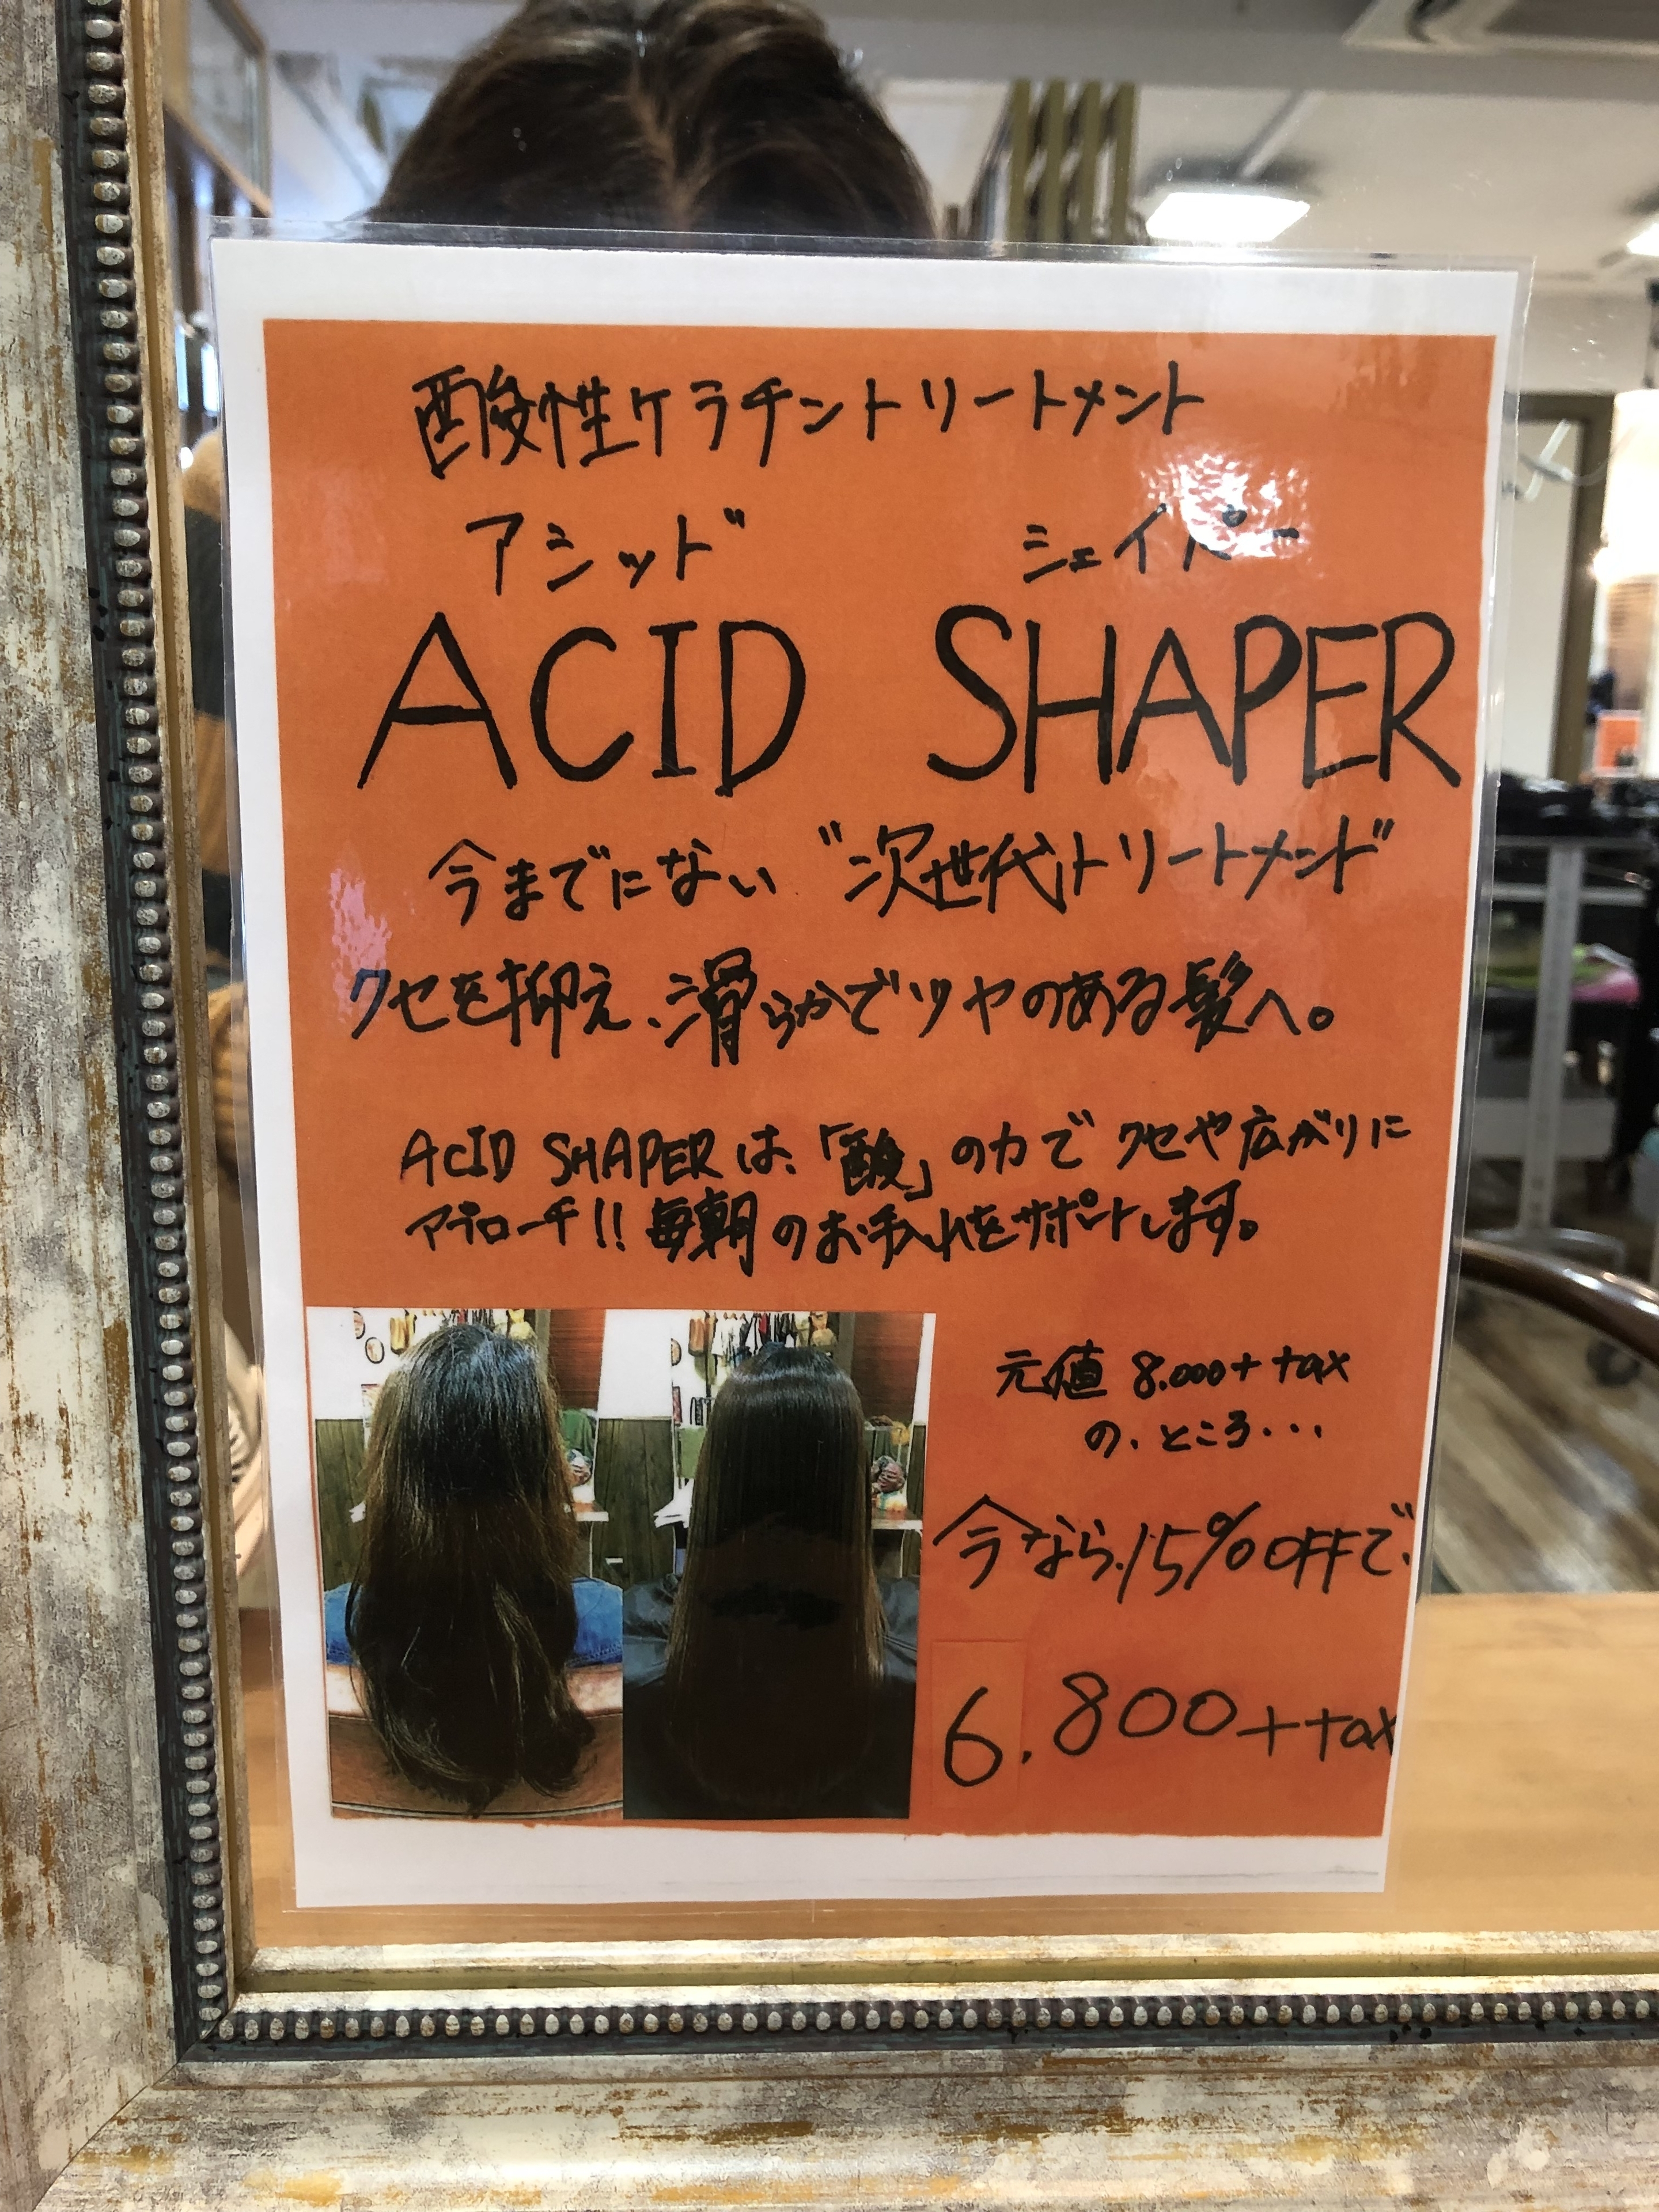 酸性ケラチントリートメント
アシッド シェイパー
ACID SHAPER
今までにない "次世代トリートメント"
クセを抑え、滑らかでツヤのある髪へ。
ACID SHAPERは、「酸」の力でクセや広がりに
アプローチ!!毎朝のお手入れをサポートします。
元値 8.000+tax
の、ところ...
今なら、15%OFFで、
6.800+tax